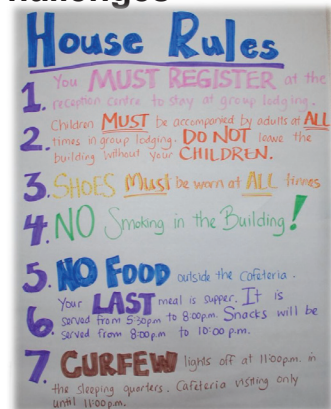 hallenges
House Rules
1. You MUST REGISTER at the
reception centre to stay at group lodging.
2. Children MUST be accompanied by adults at ALL
times in group lodging. DO NOT leave the
building without your CHILDREN.
3. SHOES Must be worn at ALL times
4. NO Smoking in the Building!
5. NO FOOD outside the cafeteria.
6. Your LAST meal is supper. It is
served from 5:30pm to 8:00pm. Snacks will be
served from 8:00p.m to 10:00 p.m.
7 CURFEW lights off at 11:00p.m. in
the sleeping quarters. Cafeteria visiting only
until 11:00p.m.